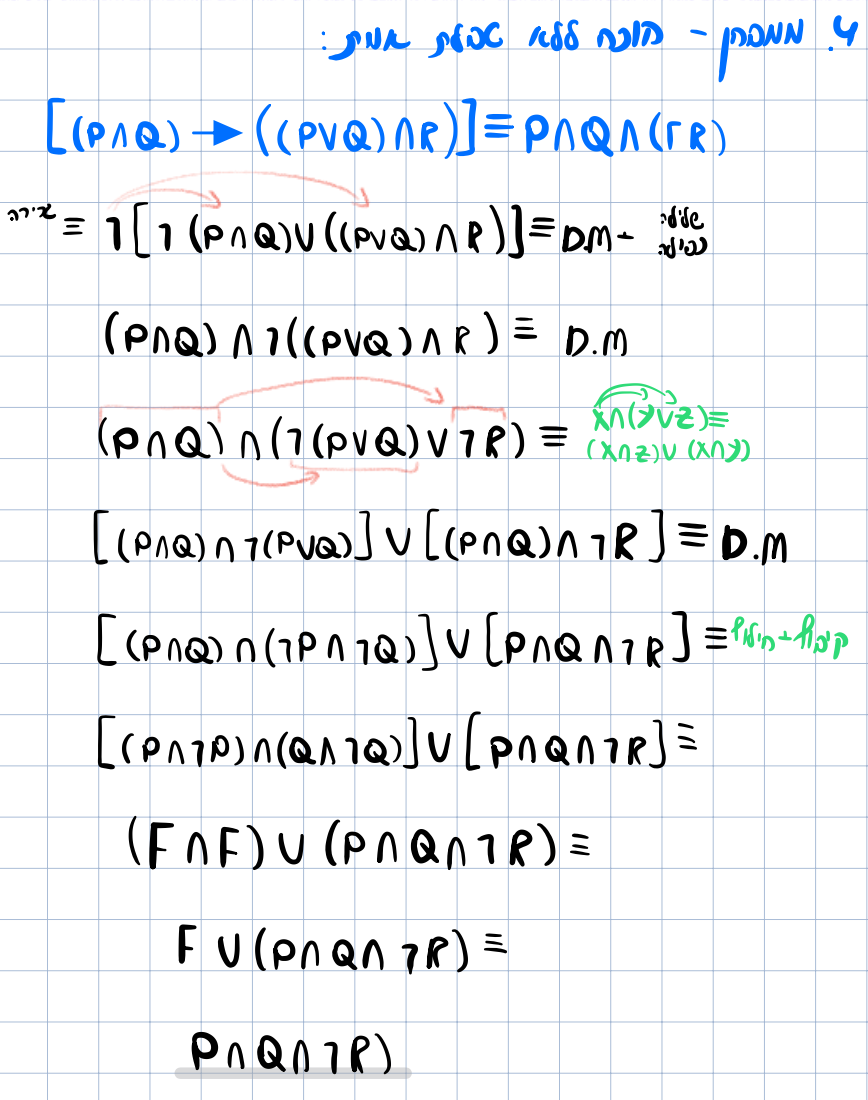 4. ממבחן - הוכח ללא טבלת אמת:
[(P∧Q) → ((P∨Q)∧R)] ≡ P∧Q∧(¬R)
גרירה ≡ ¬[¬(P∧Q)∨((P∨Q)∧R)] ≡ D.M + שלילה כפולה
(P∧Q)∧¬((P∨Q)∧R) ≡ D.M
(P∧Q)∧(¬(P∨Q)∨¬R) ≡ X∧(Y∨Z)≡
(X∧Z)∨(X∧Y)
[(P∧Q)∧¬(P∨Q)]∨[(P∧Q)∧¬R] ≡ D.M
[(P∧Q)∧(¬P∧¬Q)]∨[P∧Q∧¬R] ≡ קיבוץ+חילוף
[(P∧¬P)∧(Q∧¬Q)]∨[P∧Q∧¬R] ≡
(F∧F)∨(P∧Q∧¬R) ≡
F∨(P∧Q∧¬R) ≡
P∧Q∧¬R)